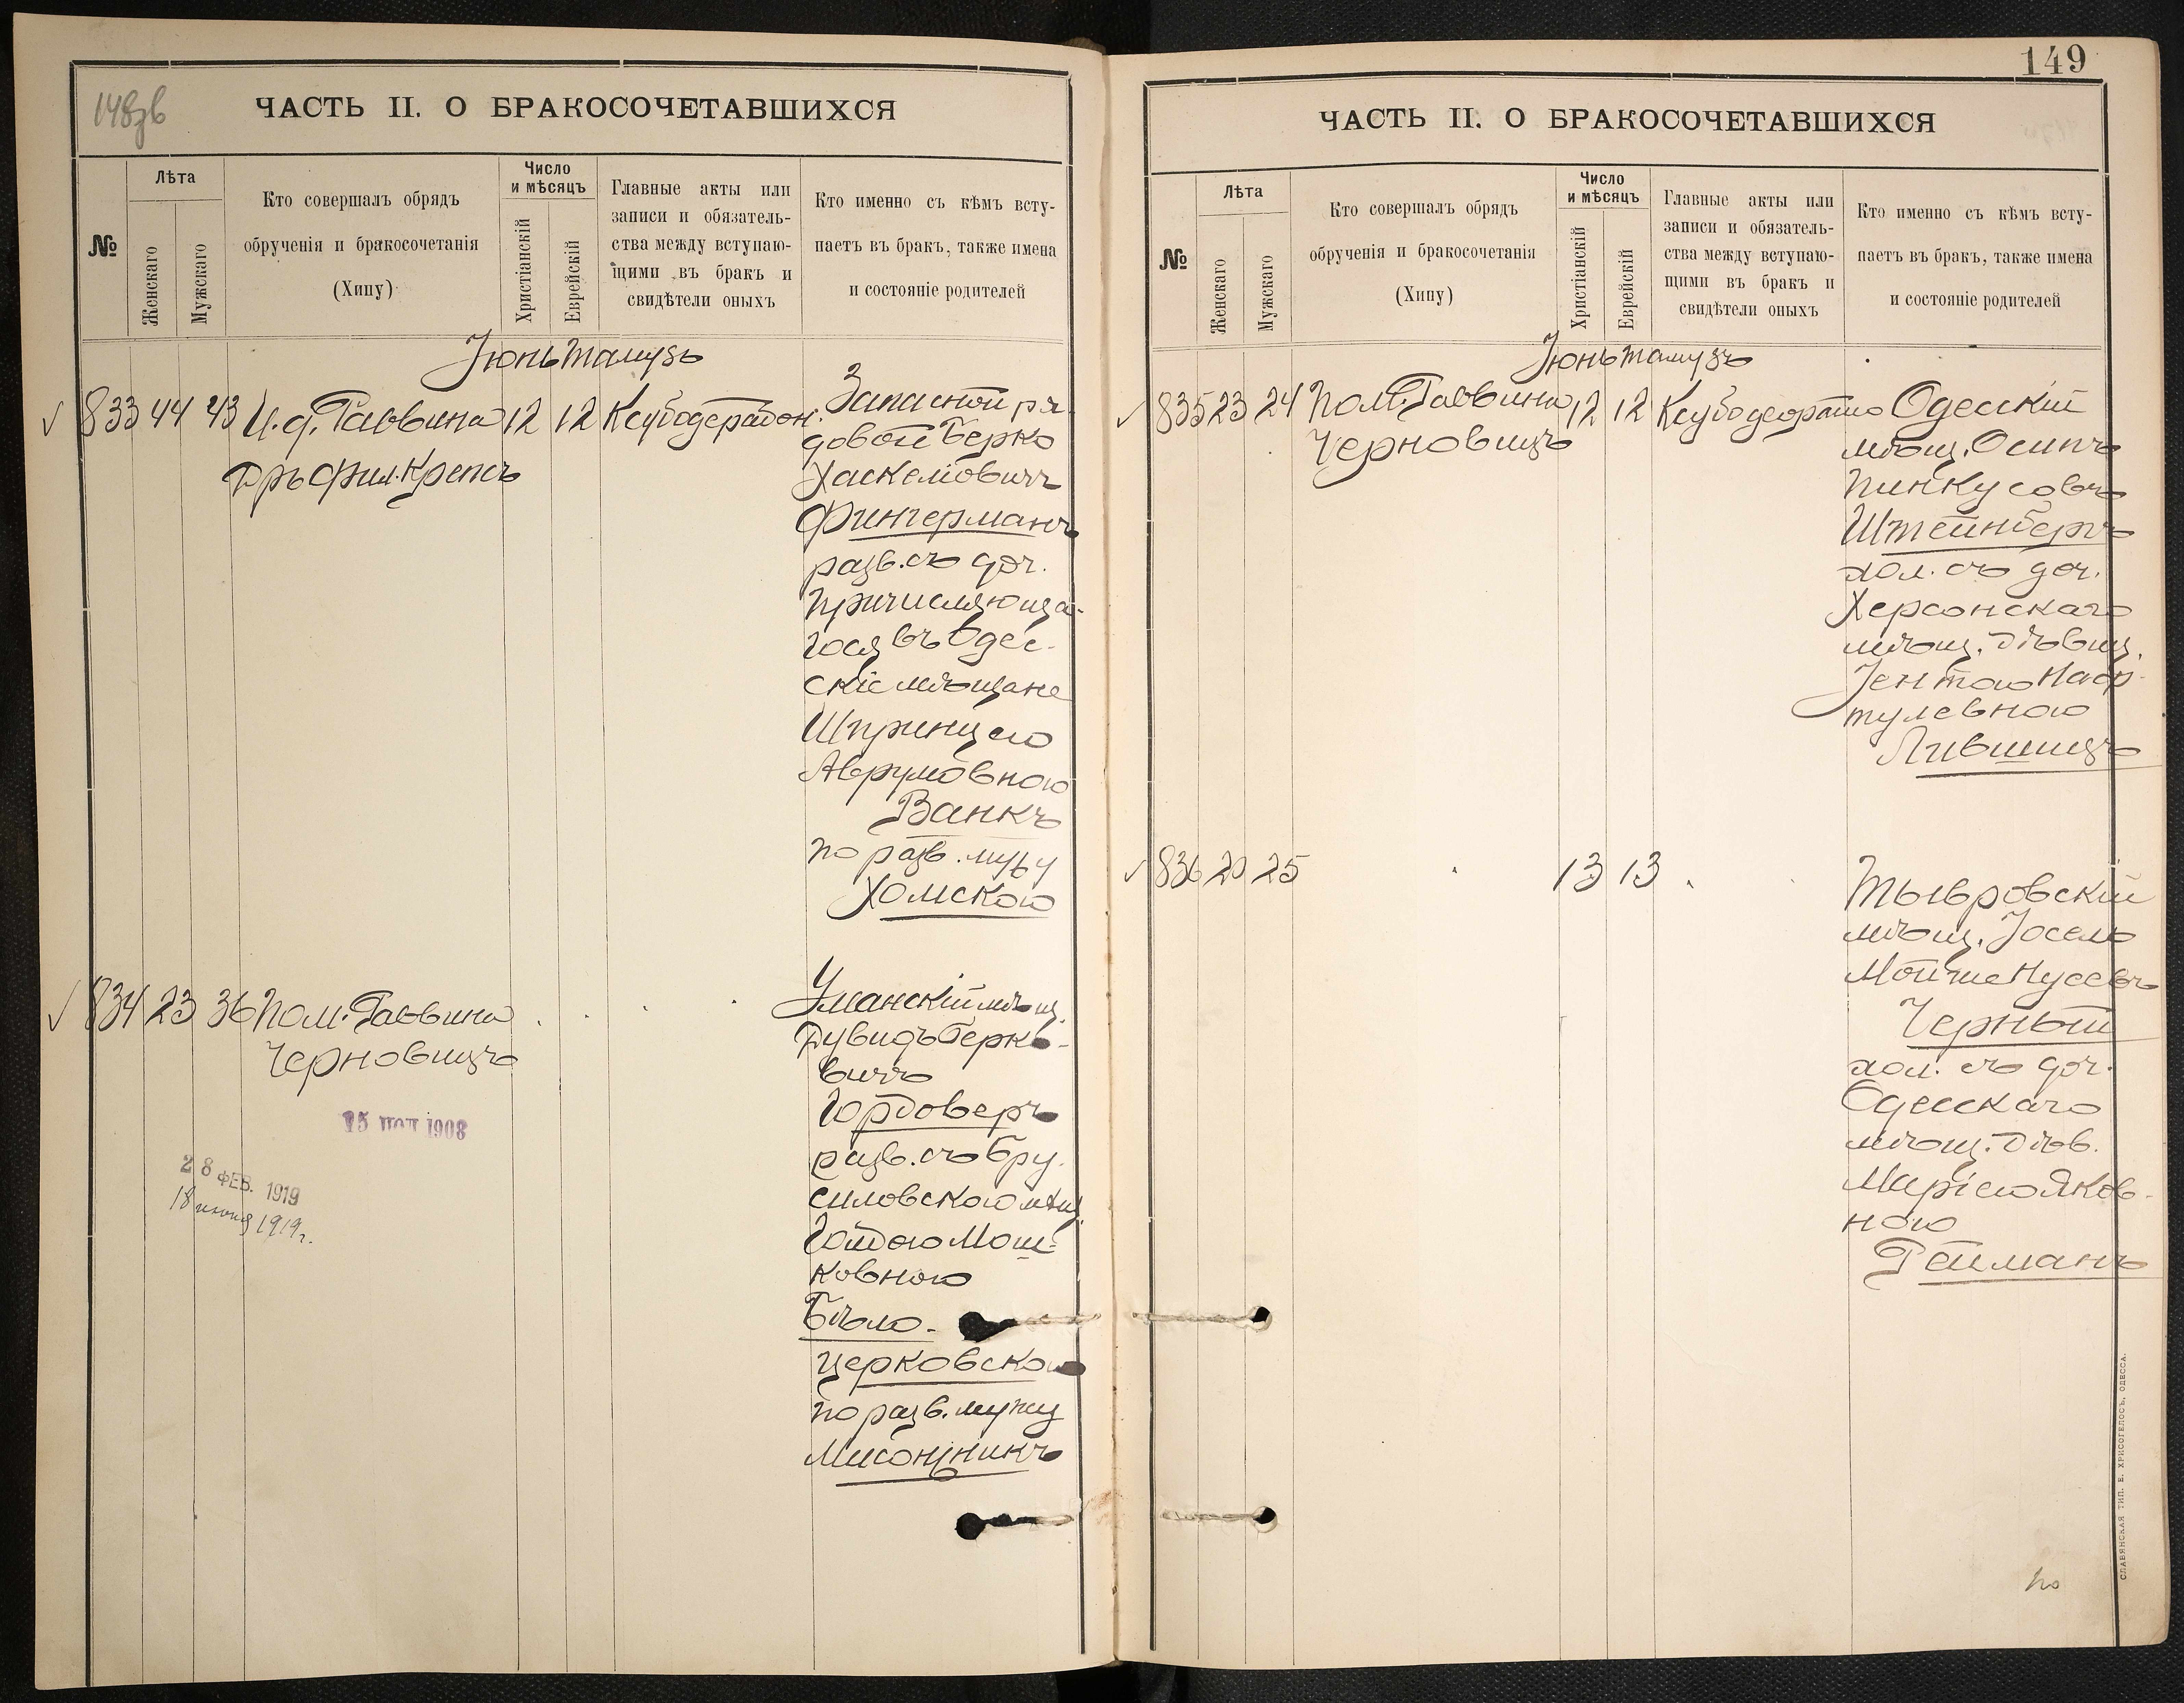 148зв
ЧАСТЬ II. О БРАКОСОЧЕТАВШИХСЯ
№
Лѣта
Женскаго
Мужскаго
Кто совершалъ обрядъ
обрученія и бракосочетанія
(Хипу)
Число
и мѣсяцъ
Христіанскій
Еврейскій
Главные акты или
записи и обязатель-
ства между вступаю-
щими въ бракъ и
свидѣтели оныхъ
Кто именно съ кѣмъ всту-
паетъ въ бракъ, также имена
и состояніе родителей
Іюнь Тамузъ
833 44 43 И.д. Раввина 12 12 Ксубодерабон.
Дръ Фил. Крепсъ
Запасной ря-
довой Берко
Хаскелiовичъ
Фингерманъ
разв. съ доч.
причисляюща-
гося въ Одес-
скіе мѣщане
Шпринцею
Аврумовною
Ванкъ
по разв. мужу
Хомскою
834 23 36 Пом. Раввина
Черновицъ
Уманскій мѣщ.
Дувидъ Берко-
вичъ
Гордоверъ
разв. съ Бру-
силовскою мѣщ.
Голдою Мош-
ковною
Бѣло-
церковскою
по разв. мужу
15 1908
28 ФЕВ. 1919
18 июня 1919г.
149
ЧАСТЬ II. О БРАКОСОЧЕТАВШИХСЯ
№
Лѣта
Женскаго
Мужскаго
Кто совершалъ обрядъ
обрученія и бракосочетанія
(Хипу)
Число
и мѣсяцъ
Христіанскій
Еврейскій
Главные акты или
записи и обязатель-
ства между вступаю-
щими въ бракъ и
свидѣтели оныхъ
Кто именно съ кѣмъ всту-
паетъ въ бракъ, также имена
и состояніе родителей
Іюнь Тамузъ
835 23 24 Пом. Раввина 12 12
Черновицъ
Одесскій
мѣщ. Осипъ
Пинкусовъ
Штейнбергъ
хол. съ доч.
Херсонскаго
мѣщ. дѣвиц.
Іентою Наф-
тулевною
Лившицъ
836 20 25 13 13
Тывровскій
мѣщ. Іосель
Мойше Нусевъ
Черный
хол. съ доч.
Одесскаго
мѣщ. дѣв.
Маріею Яков-
ною
Рейманъ
СЛАВЯНСКАЯ ТИП. Е. ХРИСОГЕЛОСЪ, ОДЕССА.